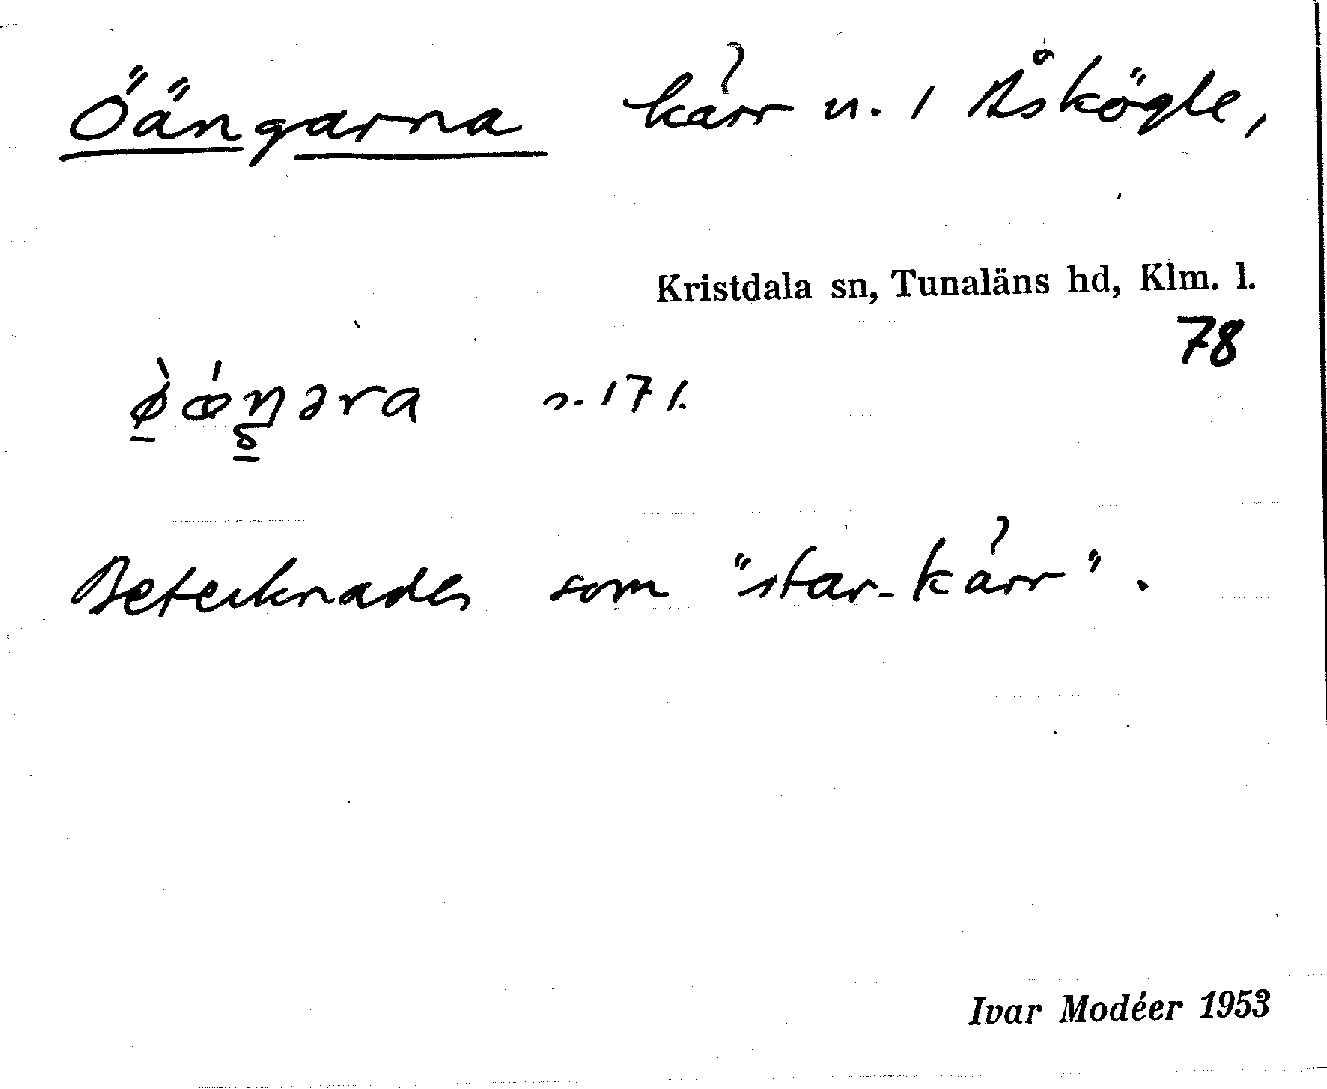 Öängarna kärr u. 1 Åskögle,
Kristdala sn, Tunaläns hd, Klm. l.
78
Betecknades som "star-kärr".
Ivar Modéer 1953